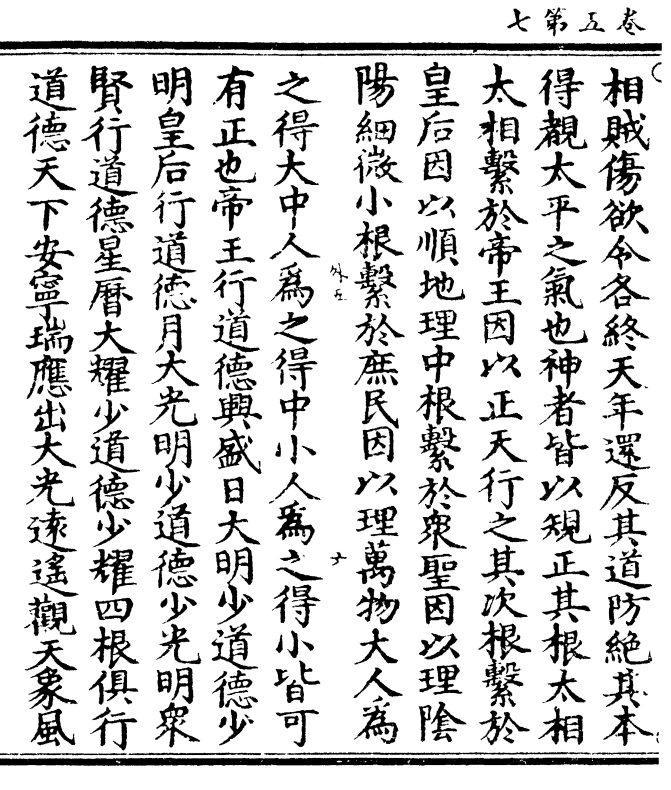 卷五第七
相賊傷欲令各終天年還反其道防絕其本
得覩太平之氣也神者皆以規正其根太相
太相繫於帝王因以正天行之其次根繫於
皇后因以順地理中根繫於衆聖因以理陰
陽細微小根繫於庶民因以理萬物大人爲
外五
十
之得大中人爲之得中小人爲之得小皆可
有正也帝王行道德興盛日大明少道德少
明皇后行道德月大光明少道德少光明衆
賢行道德星曆大耀少道德少耀四根俱行
道德天下安寧瑞應出大光遠遙觀天象風